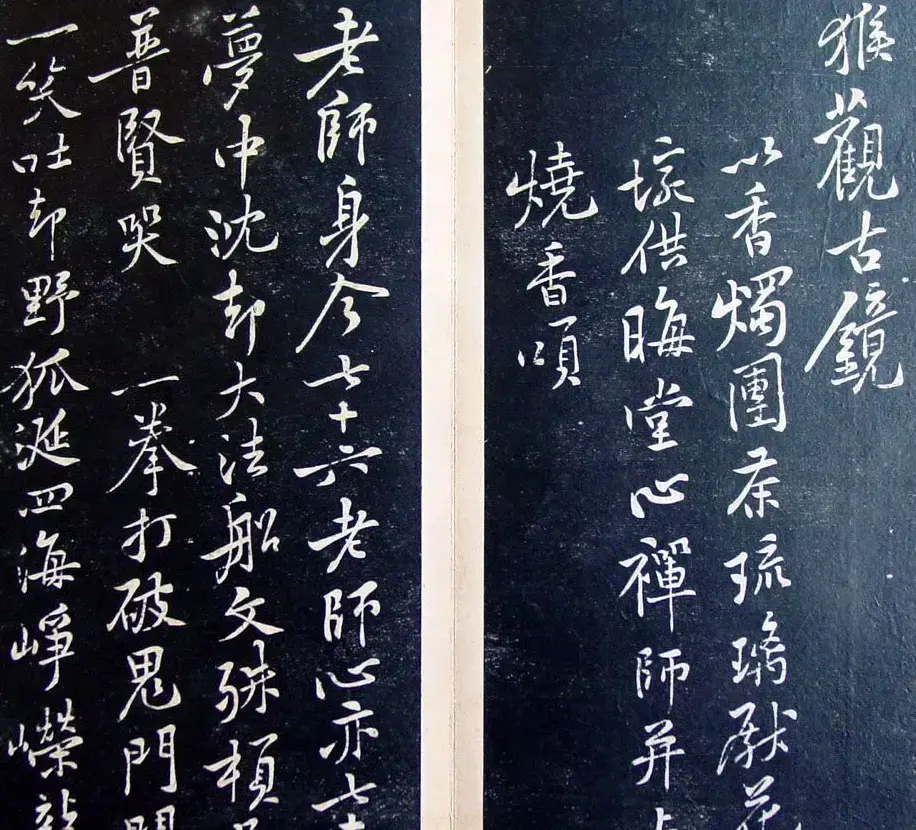 猴觀古鏡
以香燭團茶琉璃獻花
壞供晦堂心禪師并
燒香頌
老師身今七十六老師心亦七
夢中沈却大法船文殊頓
普賢哭 一拳打破鬼門關
一笑吐却野狐涎四海崢嶸龍